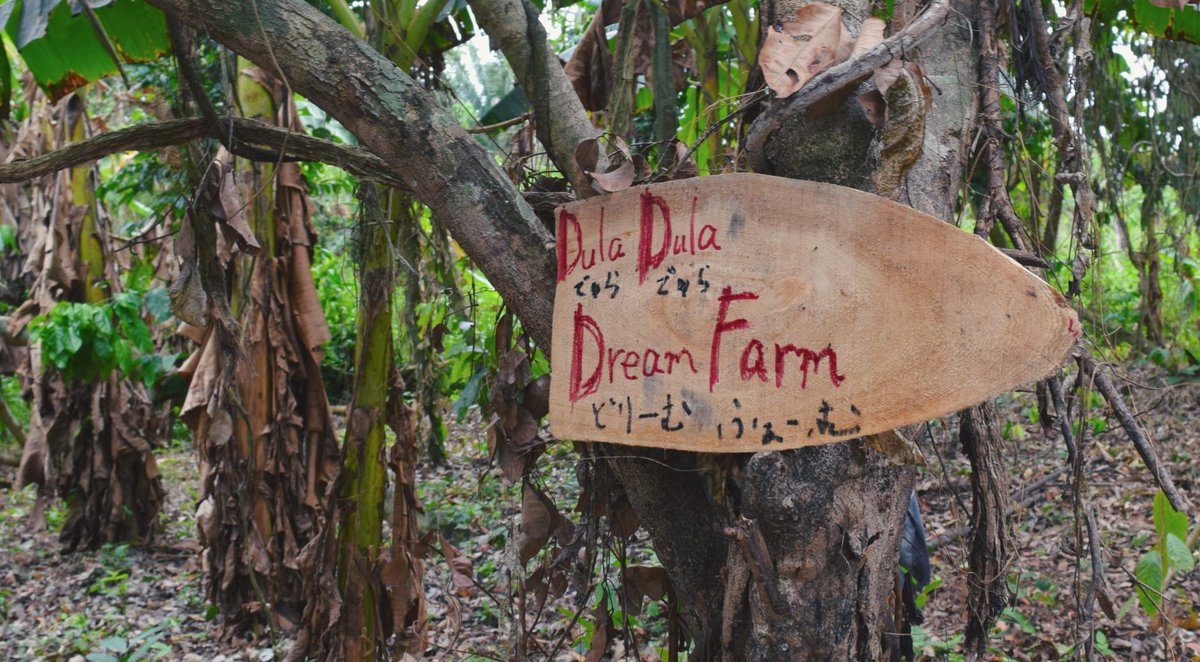 Dula Dula
でゅら でゅら
Dream Farm
どりーむ ふぁーむ